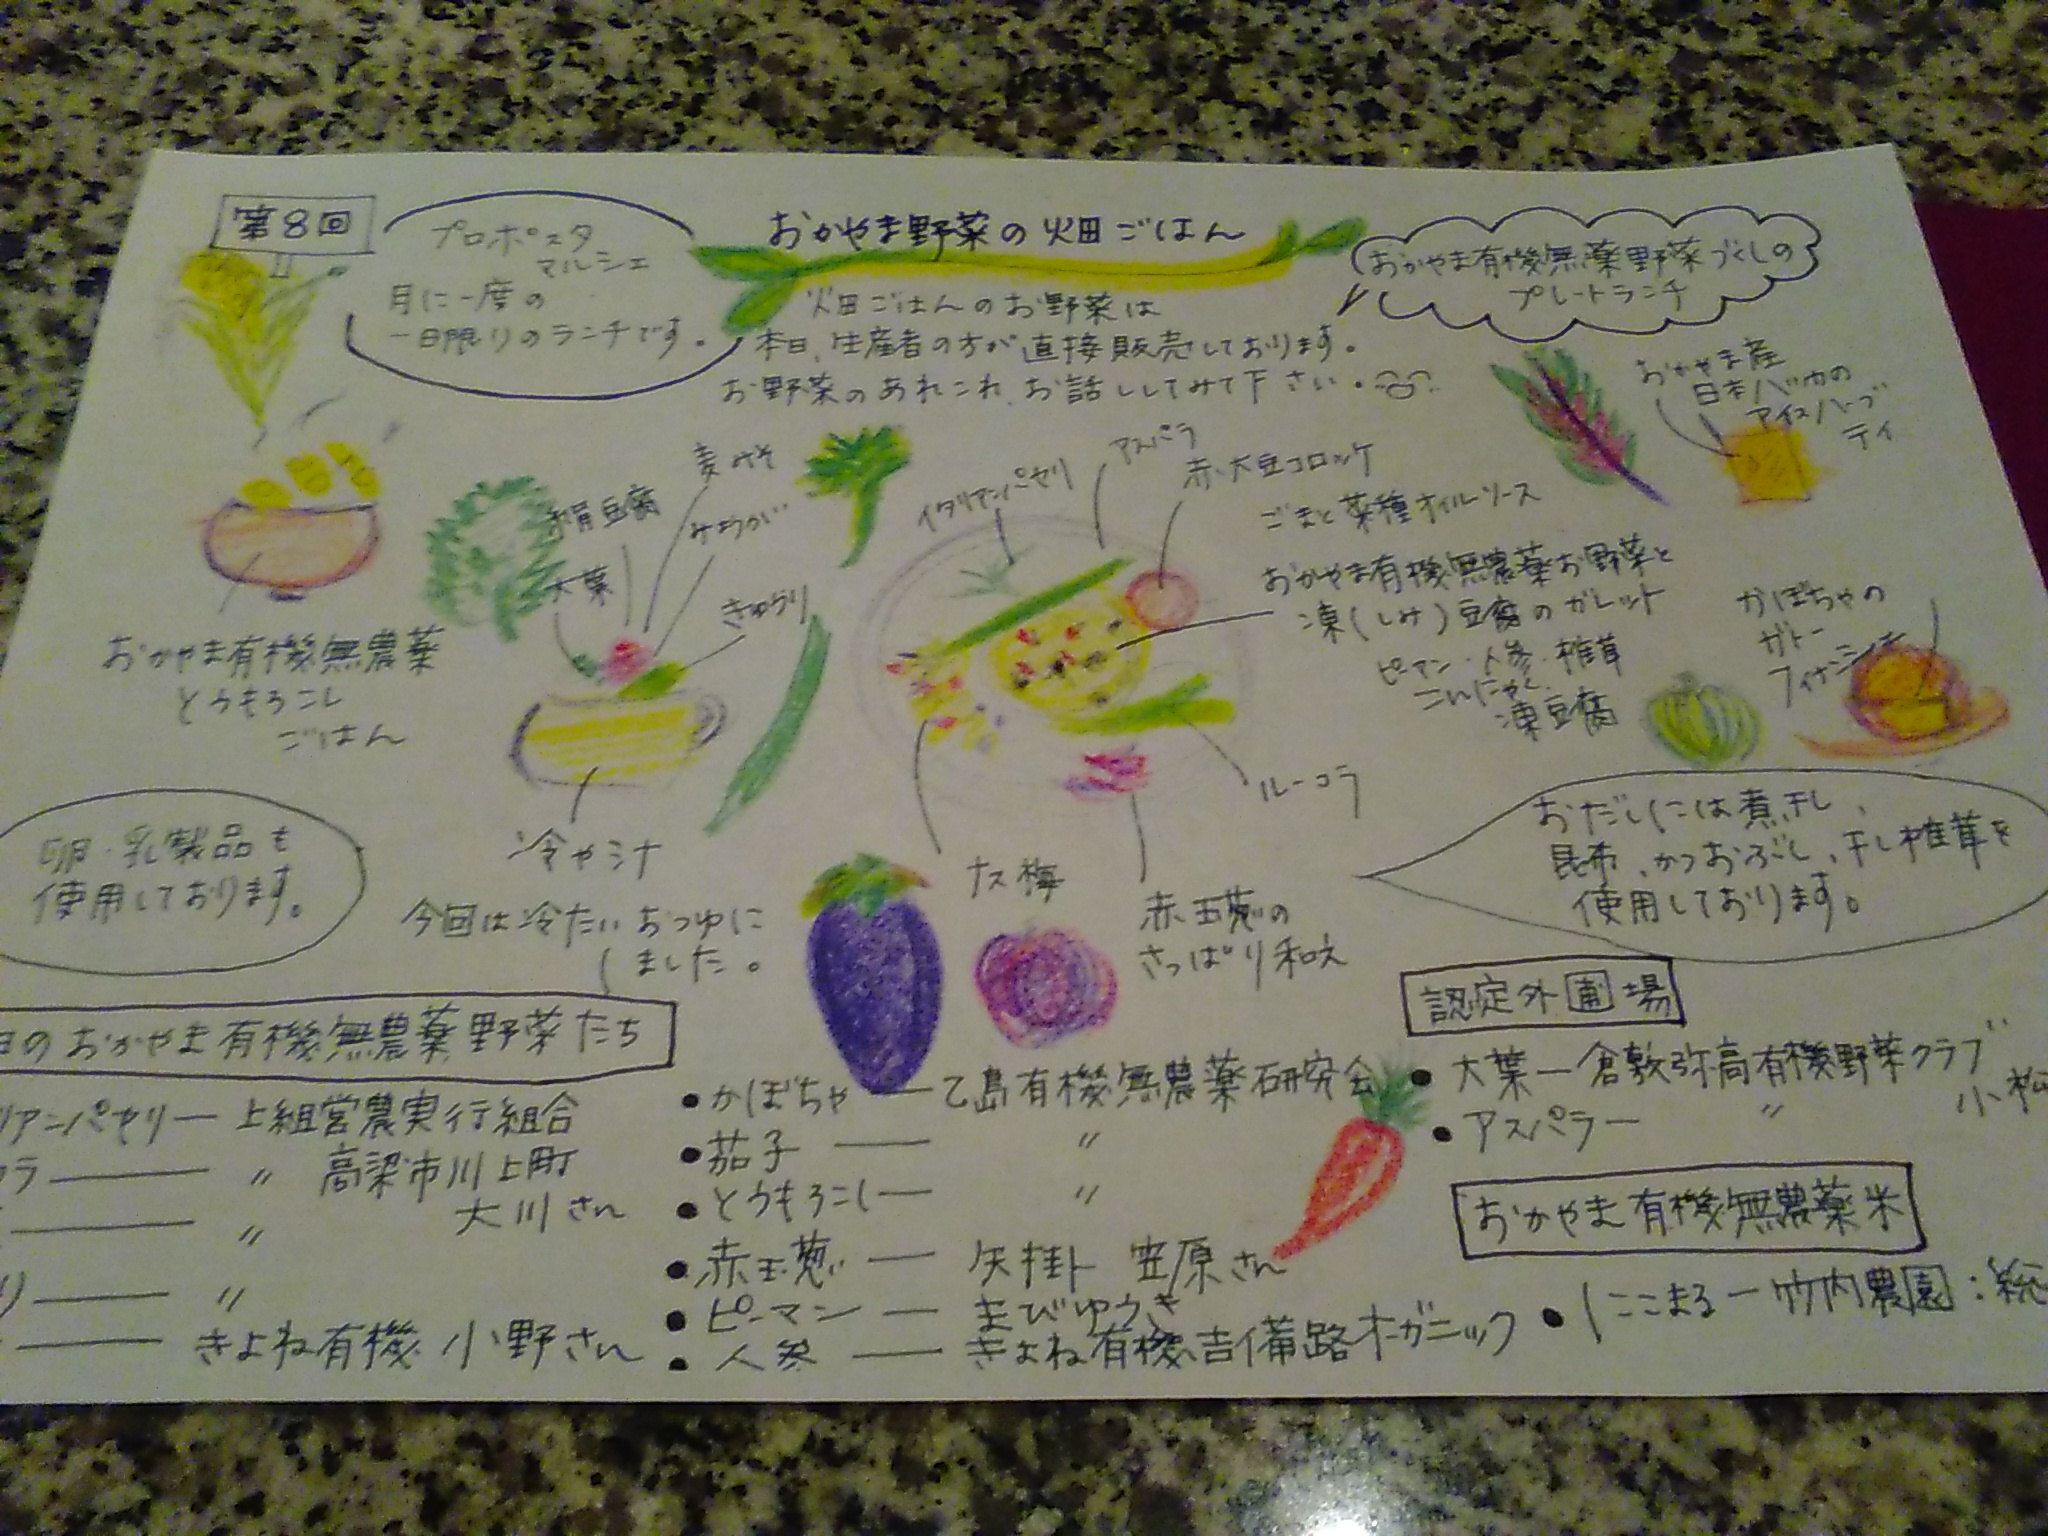 第8回
プロポスタ
マルシェ
月に一度の
一日限りのランチです。
おかやま野菜の畑ごはん
畑ごはんのお野菜は
本日、生産者の方が直接販売しております。
お野菜のあれこれ、お話ししてみて下さい。
おかやま有機無農薬野菜づくしの
プレートランチ
おかやま産
日本ハッカの
アイスハーブ
ティ
おかやま有機無農薬
とうもろこし
ごはん
麦みそ
絹豆腐
みょうが
大葉
きゅうり
冷や汁
今回は冷たいおつゆに
しました。
イタリアンパセリ
アスパラ
赤大豆コロッケ
ごまと菜種オイルソース
おかやま有機無農薬お野菜と
凍(しみ)豆腐のガレット
ピーマン・人参・椎茸
こんにゃく、
凍豆腐
ルーコラ
ナス梅
赤玉葱の
さっぱり和え
かぼちゃの
ガトー
フィナンシェ
卵・乳製品も
使用しております。
おだしには煮干し、
昆布、かつおぶし、干し椎茸を
使用しております。
日のおかやま有機無農薬野菜たち
リアンパセリー 上組営農実行組合
コラー 〃 高梁市川上町
大川さん
〃
リー 〃
ー きよね有機 小野さん
●かぼちゃー乙島有機無農薬研究会
●茄子ー 〃
●とうもろこしー 〃
●赤玉葱ー 矢掛ト 笠原さん
●ピーマンー まびゆうき
●人参ー きよね有機、吉備路オーガニック
認定外圃場
●大葉ー倉敷弥高有機野菜クラブ
小松
●アスパラー 〃
おかやま有機無農薬米
●にこまるー竹内農園:総